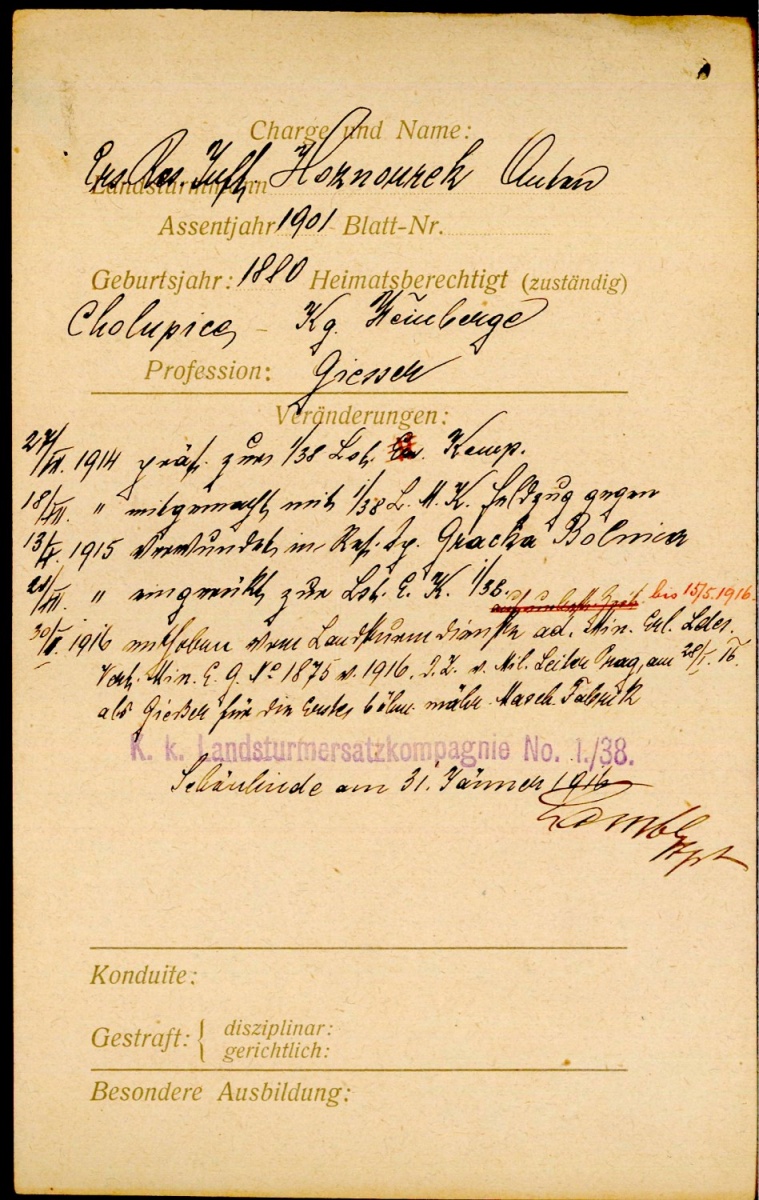 Charge und Name:
Ers. Res. Inft. Hornourek Anton
Landsturmmann
Assentjahr 1901 Blatt-Nr.
Geburtsjahr: 1880 Heimatsberechtigt (zuständig)
Cholupice – Kg. Weinberge
Profession: Giesser
Veränderungen:
27/VII. 1914 präs. zur 1/38 Lst. Komp.
18/VIII. " mitgemacht mit 1/38 L. M. K. Feldzug gegen
13/ 1915 verwundet in Res. Sp. Gracka Bolnica
" eingerückt zur Lst. E. K. 1/38. bis 15/5.1916.
30/ 1916 enthoben vom Landsturmdienste ad. Min. Erl. Ldes.
Vert. Min. E. G. No 1875 v. 1916. d. v. Mil. Leiter Prag, am 28/I. 16.
als Gießer für die Erste böhm. mähr. Masch. Fabrik
K. k. Landsturmersatzkompagnie No. 1./38.
Schönlinde am 31. Jänner 1916
Hptm
Konduite:
Gestraft: { disziplinar:
gerichtlich:
Besondere Ausbildung: